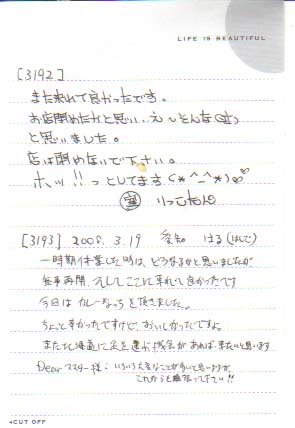 LIFE IS BEAUTIFUL
[3192]
また来れて良かったです。
お店閉めたかと思い、え〜そんな(泣)
と思いました。
店は閉めないで下さい。
ホッ!!っとしてます(*^_^*)
[3193] 2008. 3.19 愛知 はる
一時期休業した時は、どうなるかと思いましたが
無事再開、そしてここに来れて良かったです
今日は カレーなっちを頂きました。
ちょっと辛かったですけど、おいしかったですよ。
また北海道に足を運ぶ機会があれば 来たいと思います
Dear マスター様: いろいろ大変なことが多いと思いますが、
これからも頑張って下さい!!
CUT OFF